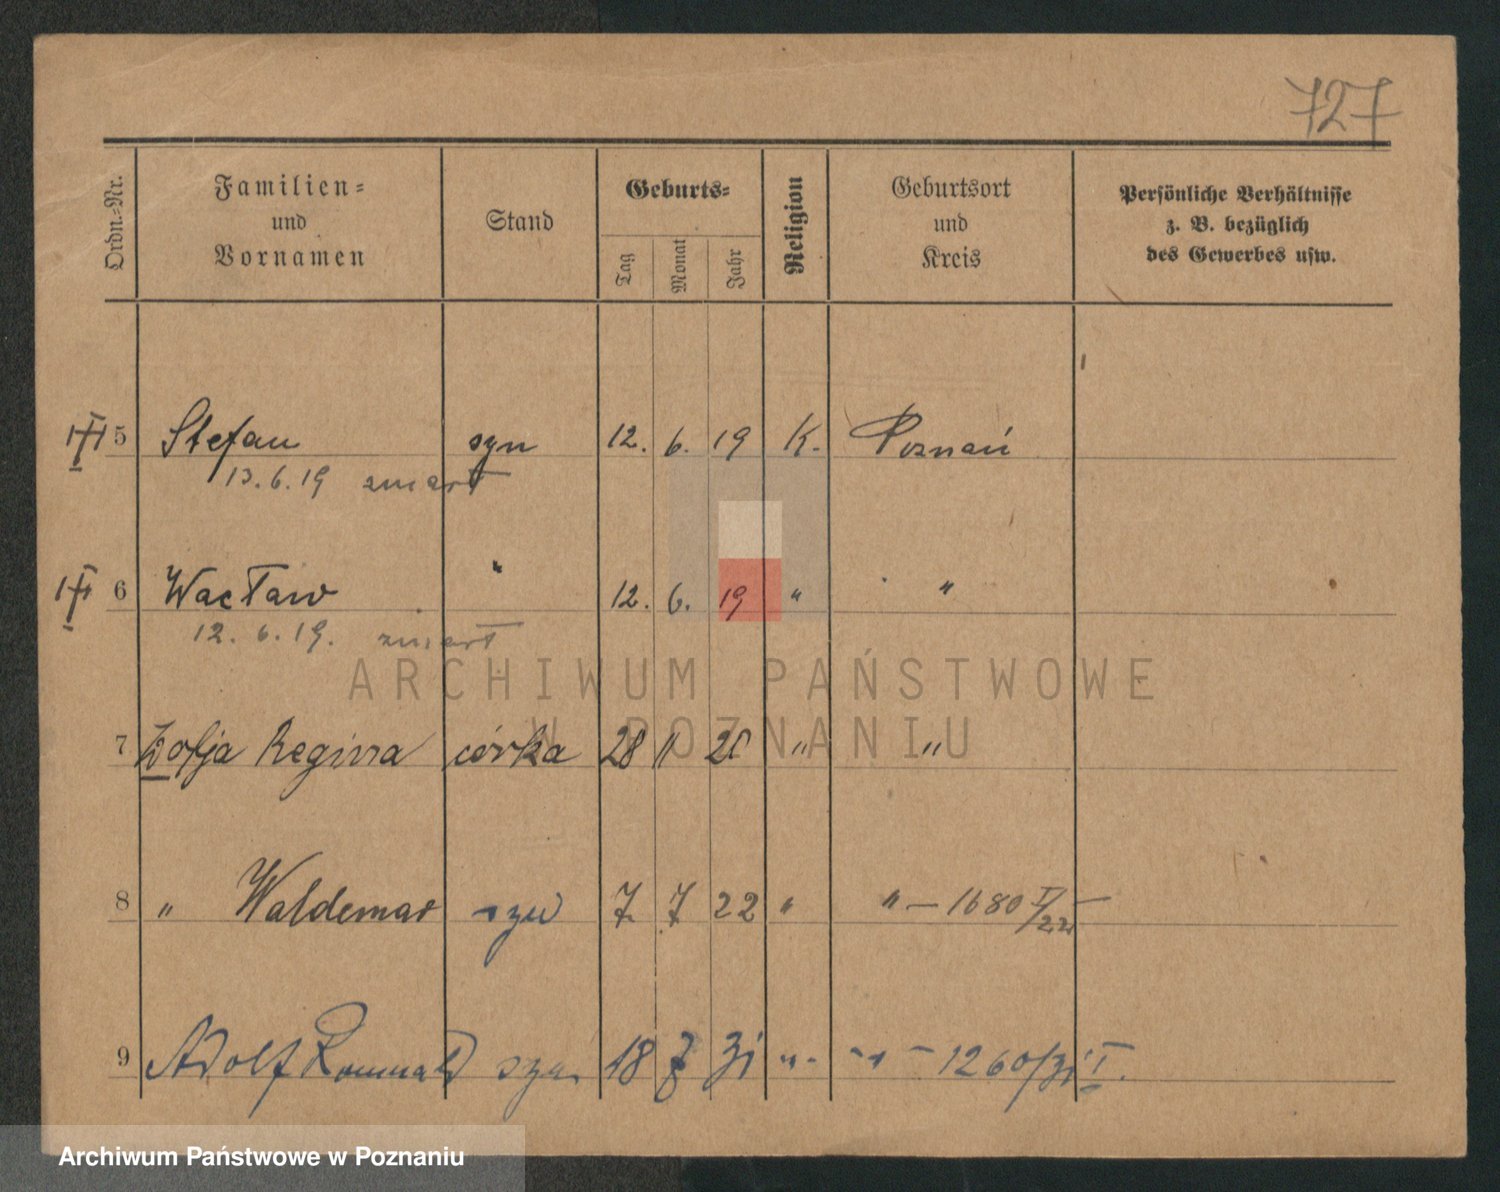 727
Ordn.-Nr. Familien- und Vornamen Stand Geburts- Tag Monat Jahr Religion Geburtsort und Kreis Persönliche Verhältnisse z. B. bezüglich des Gewerbes usw.
5 Stefan syn 12. 6. 19 K. Poznań
13.6.19 zmarł
6 Wacław " 12. 6. 19 " "
12. 6. 19. zmarł
ARCHIWUM PAŃSTWOWE
W POZNANIU
7 Zofja Regina córka 28 11 20 " "
8 " Waldemar syn 7 7 22 " " — 1680 I/22 —
9 Adolf Romuald syn 18 7 31 " " — 1260/31 I.
Archiwum Państwowe w Poznaniu